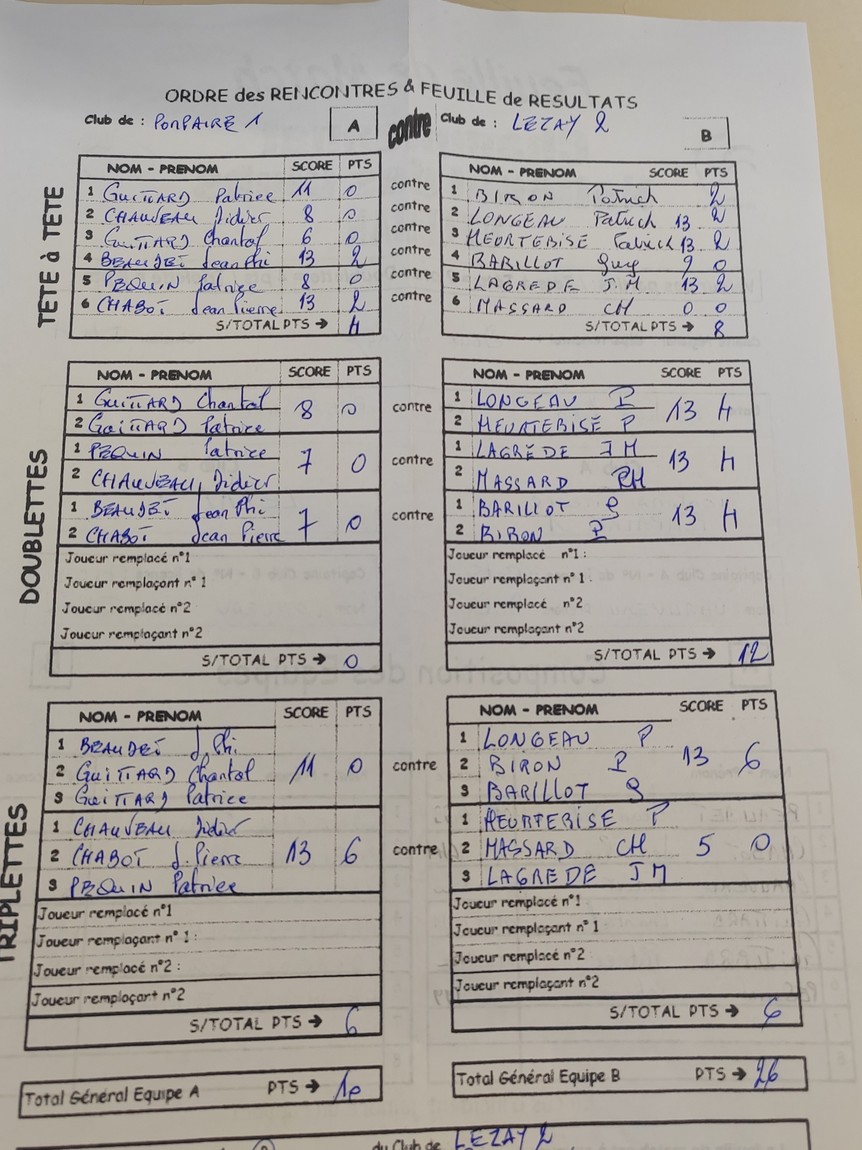 ORDRE des RENCONTRES & FEUILLE de RESULTATS
Club de : POMPAIRE 1 A contre Club de : LEZAY 2 B
TETE à TETE
NOM - PRENOM SCORE PTS NOM - PRENOM SCORE PTS
1 GUITTARD Patrice 11 0 contre 1 BIRON Patrick 2
2 CHAUVEAU Didier 8 0 contre 2 LONGEAU Patrick 13 2
3 GUITTARD Chantal 6 0 contre 3 HEURTEBISE Patrick 13 2
4 BEAUDET Jean Phi 13 2 contre 4 BARILLOT Guy 9 0
5 PEQUIN Patrice 8 0 contre 5 LAGREDE J M 13 2
6 CHABOT Jean Pierre 13 2 contre 6 MASSARD CH 0 0
S/TOTAL PTS → 4 S/TOTAL PTS → 8
DOUBLETTES
NOM - PRENOM SCORE PTS NOM - PRENOM SCORE PTS
1 GUITTARD Chantal 8 0 contre 1 LONGEAU P 13 4
2 GUITTARD Patrice 2 HEURTEBISE P
1 PEQUIN Patrice 7 0 contre 1 LAGREDE J M 13 4
2 CHAUVEAU Didier 2 MASSARD CH
1 BEAUDET Jean Phi 7 0 contre 1 BARILLOT G 13 4
2 CHABOT Jean Pierre 2 BIRON P
Joueur remplacé n°1 Joueur remplacé n°1 :
Joueur remplaçant n° 1 Joueur remplaçant n° 1 :
Joueur remplacé n°2 Joueur remplacé n°2
Joueur remplaçant n°2 Joueur remplaçant n°2
S/TOTAL PTS → 0 S/TOTAL PTS → 12
TRIPLETTES
NOM - PRENOM SCORE PTS NOM - PRENOM SCORE PTS
1 BEAUDET J. Phi 1 LONGEAU P
2 GUITTARD Chantal 11 0 contre 2 BIRON P 13 6
3 GUITTARD Patrice 3 BARILLOT G
1 CHAUVEAU Didier 1 HEURTEBISE P
2 CHABOT J. Pierre 13 6 contre 2 MASSARD CH 5 0
3 PEQUIN Patrice 3 LAGREDE J M
Joueur remplacé n°1 Joueur remplacé n°1
Joueur remplaçant n° 1 : Joueur remplaçant n° 1
Joueur remplacé n°2 : Joueur remplacé n°2
Joueur remplaçant n°2 Joueur remplaçant n°2
S/TOTAL PTS → 6 S/TOTAL PTS → 6
Total Général Equipe A PTS → 10 Total Général Equipe B PTS → 26
du Club de LEZAY 2